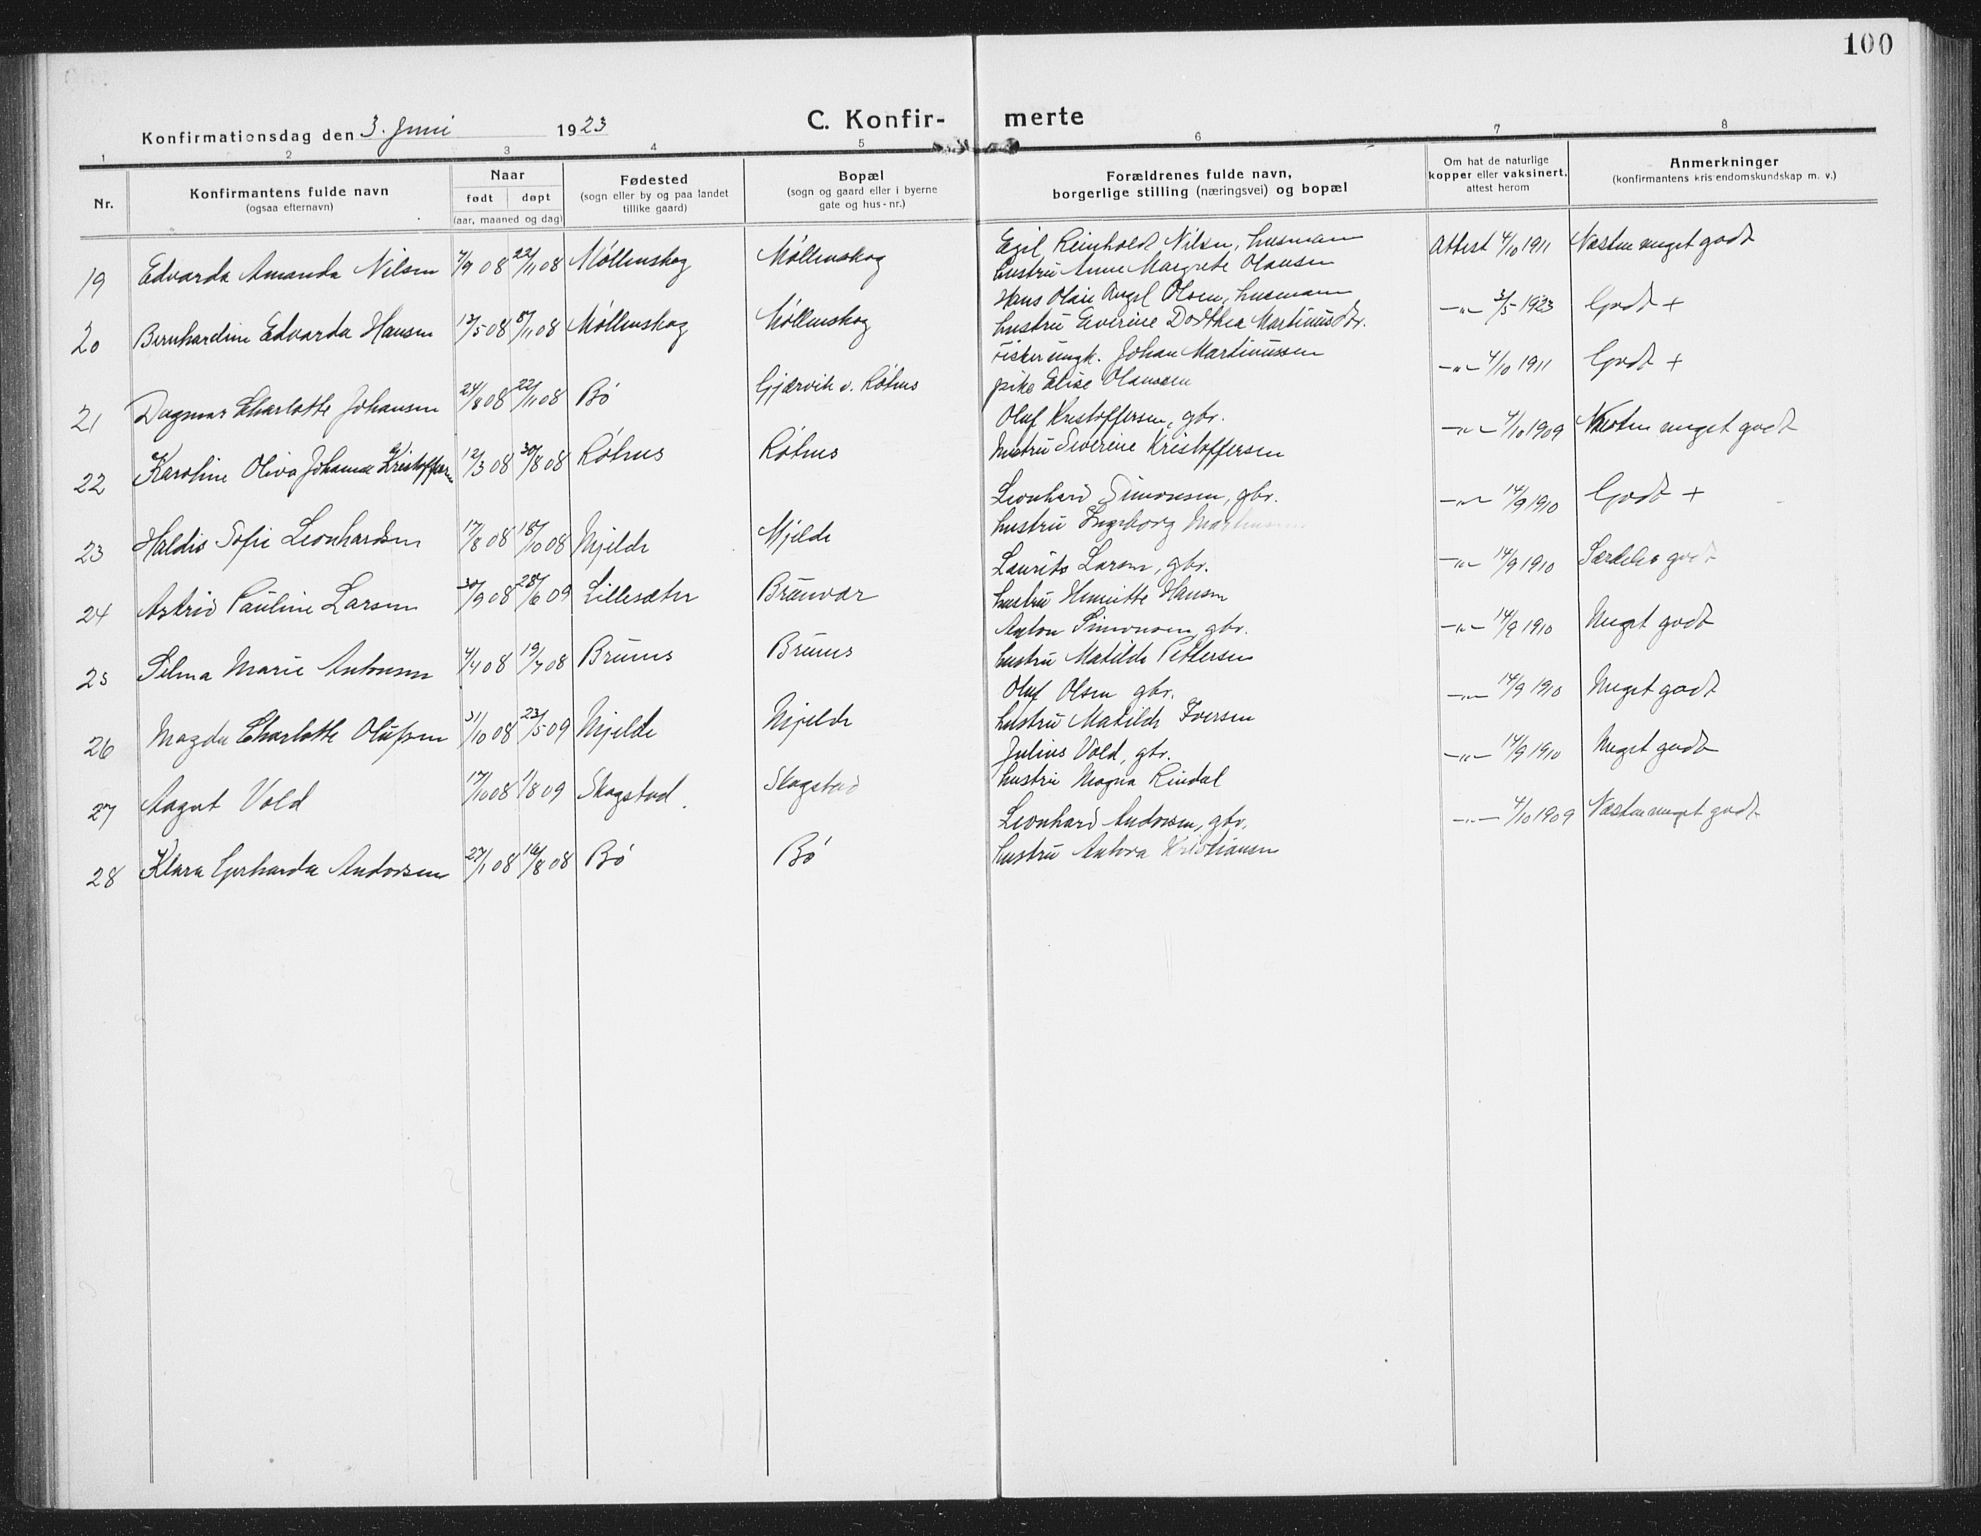 100
Konfirmationsdag den 3. Juni 1923 C. Konfir- merte
1 2 3 4 5 6 7 8
Nr. Konfirmantens fulde navn (ogsaa efternavn) Naar født døpt (aar, maaned og dag) Fødested (sogn eller by og paa landet tillike gaard) Bopæl (sogn og gaard eller i byerne gate og hus-nr.) Forældrenes fulde navn, borgerlige stilling (næringsvei) og bopæl Om hat de naturlige kopper eller vaksinert, attest herom Anmerkninger (konfirmantens kristendomskundskap m. v.)
19 Edvarda Amanda Nilsen 7/9 08 22/11 08 Møllenskog Møllenskog Egil Reinholdt Nilsen, husmann Attest 4/10 1911 Næsten meget godt
hustru Anne Margrete Olausen
20 Bernhardine Edvarda Hansen 13/5 08 8/11 08 Møllenskog Møllenskog Hans Olai Angel Olsen, husmann -"- 3/5 1923 Godt +
hustru Everine Dorthea Martinusdtr.
21 Dagmar Charlotte Johansen 24/8 08 22/11 08 Bø Gjærvik v. Røhus fisker ungk. Johan Martinussen -"- 4/10 1911 Godt +
pike Elise Olaussen
22 Karoline Oliva Johanna Kristoffersen 12/3 08 30/8 08 Røhus Røhus Oluf Kristoffersen, gbr. -"- 4/10 1909 Næsten meget godt
hustru Severine Kristoffersen
23 Haldis Sofie Leonhardsen 17/8 08 18/10 08 Mjelde Mjelde Leonhard Simonsen, gbr. -"- 14/9 1910 Godt +
hustru Ingeborg
24 Astrid Pauline Larsen 30/9 08 28/6 09 Lillesæter Brunvær Laurits Larsen, gbr. -"- 14/9 1910 Særdeles godt
hustru Henriette Hansen
25 Selma Marie Antonsen 4/4 08 19/7 08 Brunes Brunes Anton Simonsen, gbr. -"- 14/9 1910 Meget godt
hustru Matilde Pettersen
26 Magda Charlotte Olufsen 31/10 08 23/5 09 Mjelde Mjelde Oluf Olsen gbr. -"- 14/9 1910 Meget godt
hustru Matilde Iversen
27 Aagot Vold 17/10 08 1/8 09 Skogstad. Skogstad Julius Vold, gbr. -"- 14/9 1910 Meget godt
hustru Magna Rindal
28 Klara Gerharda Andorsen 27/1 08 16/8 08 Bø Bø Leonhard Andorsen, gbr. -"- 4/10 1909 Næsten meget godt
hustru Antora Kristiansen